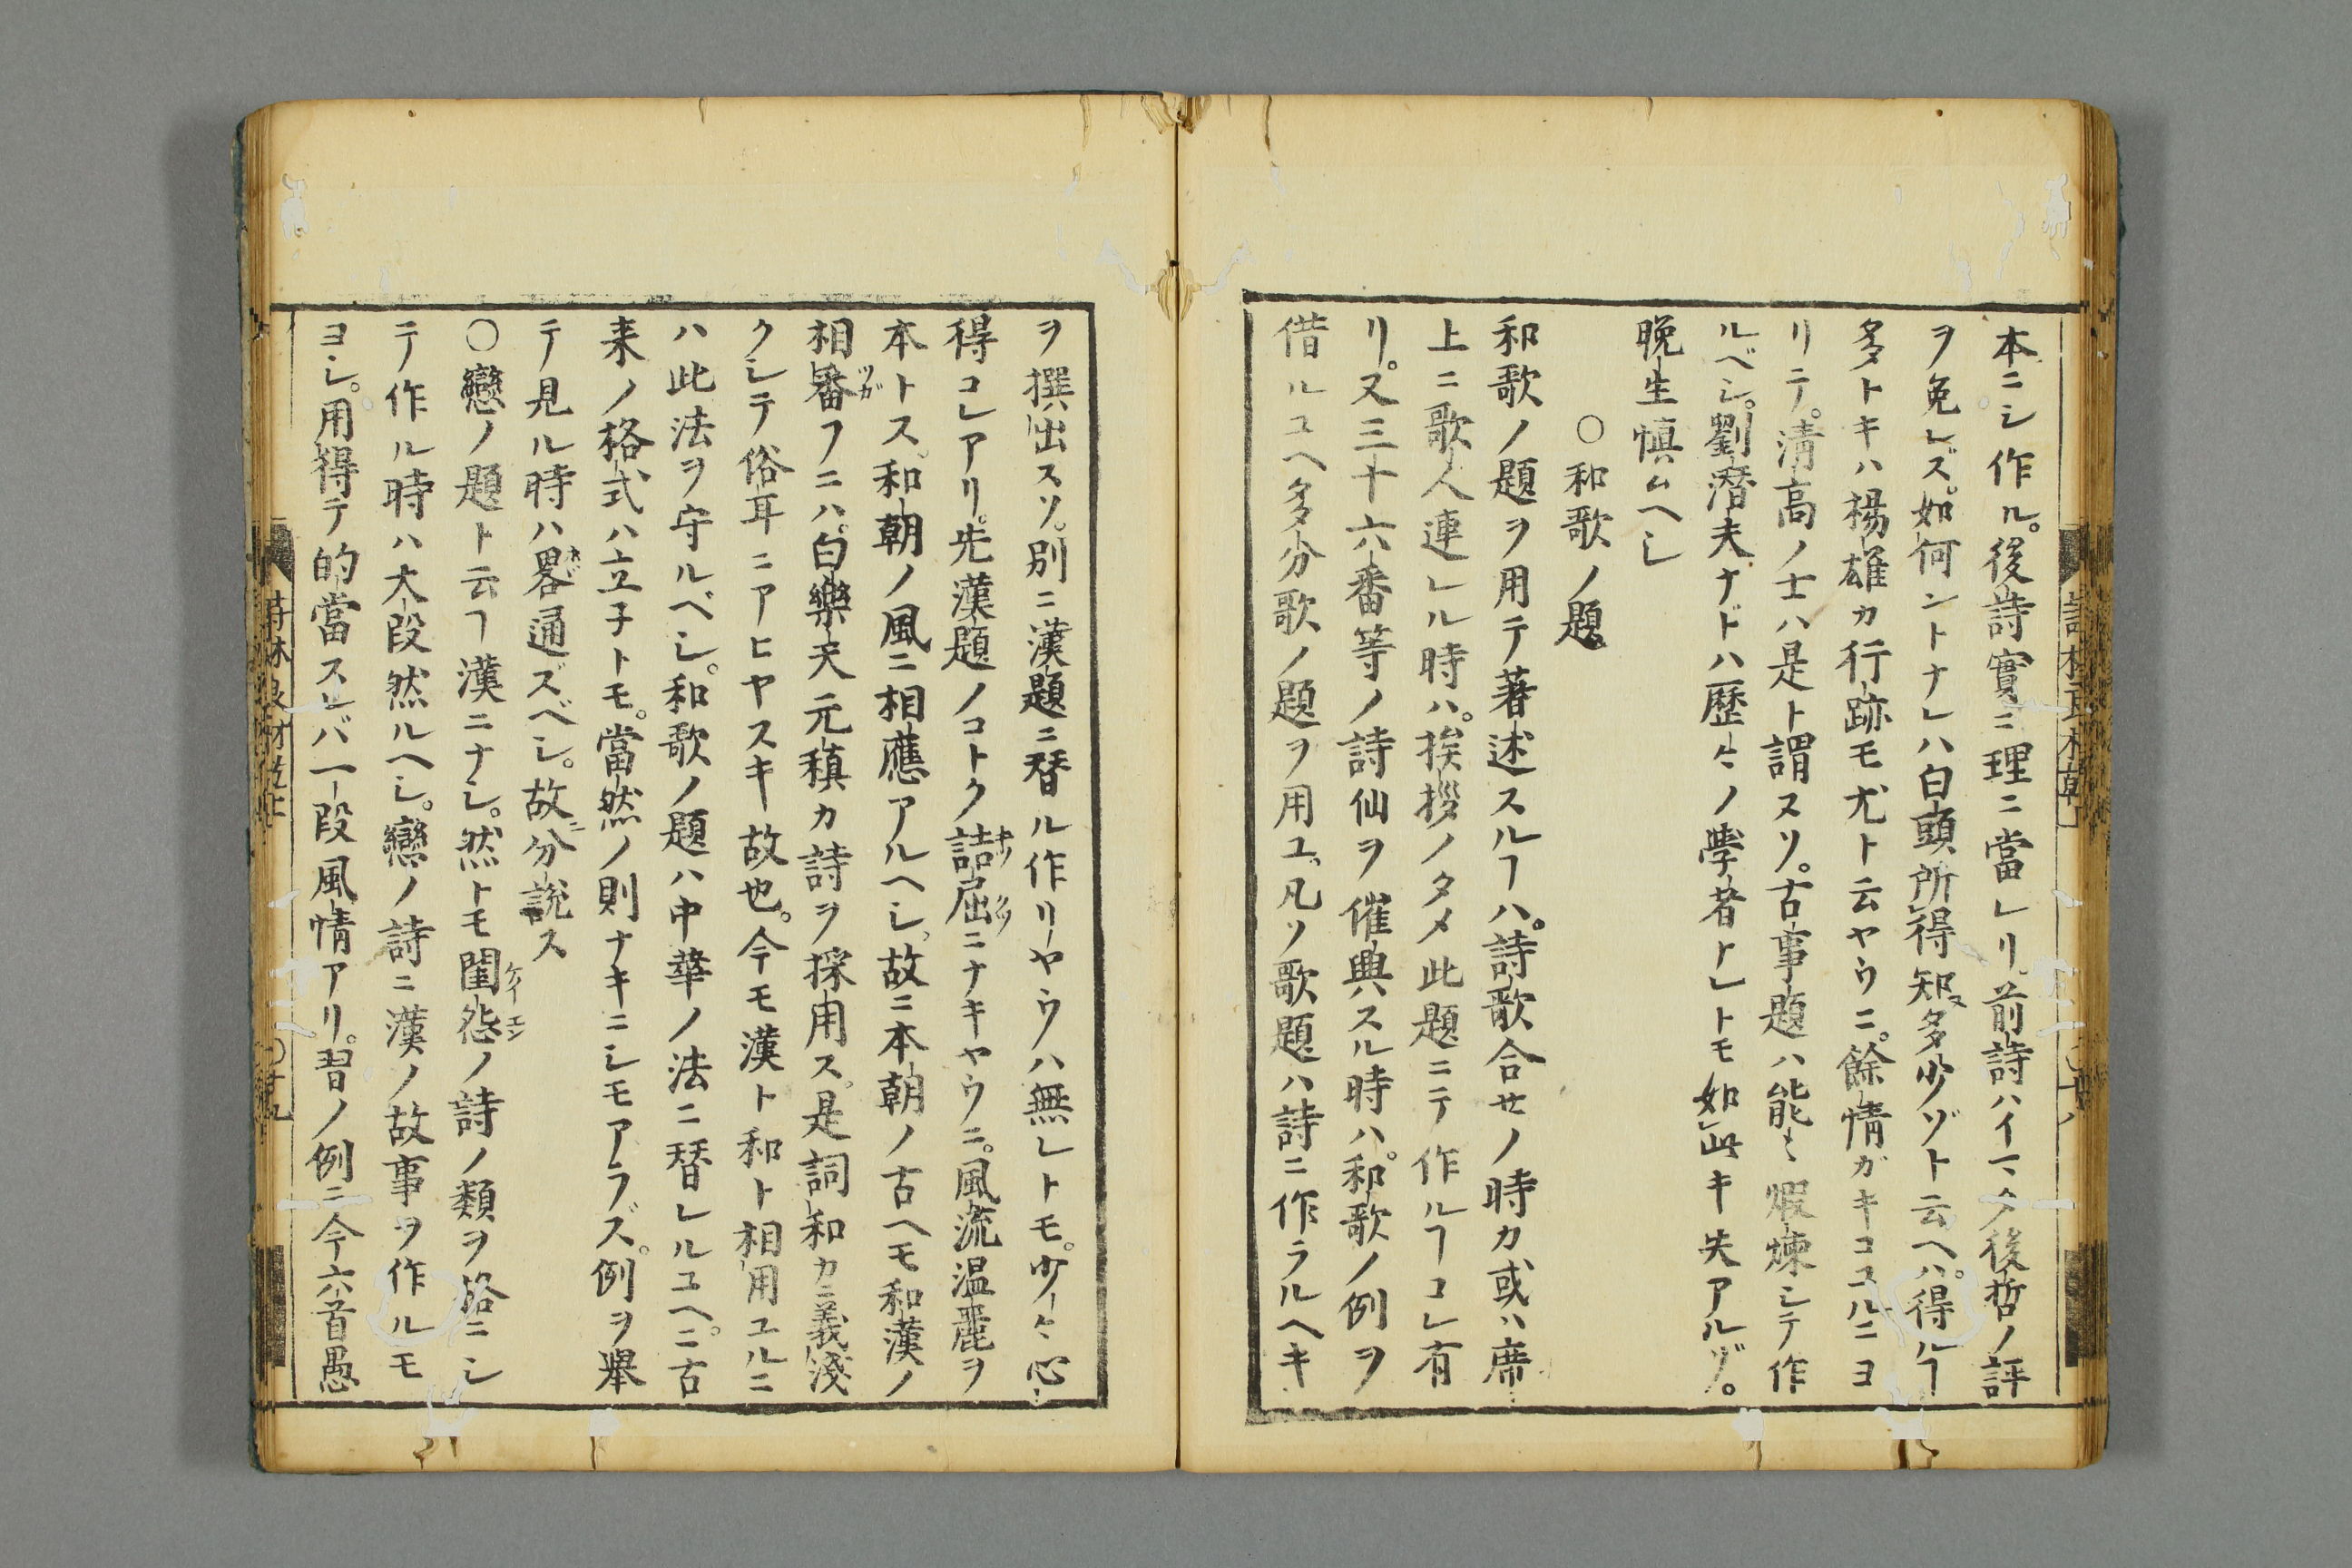 本ニシ作ル。後詩實ニ理ニ當レリ。前詩ハイマタ後哲ノ評
ヲ免レズ。如何ントナレハ白頭所得知多少ゾト云ヘハ。得ルヿ
多トキハ楊雄カ行跡モ尤ト云ヤウニ。餘情ガキコユルニヨ
リテ。清高ノ士ハ是ト謂ヌソ。古事題ハ能〻煆煉シテ作
ルベシ。劉潜夫ナドハ歴〻ノ學者トレトモ如此キ失アルゾ。
晩生慎ムヘシ
○和歌ノ題
和歌ノ題ヲ用テ著述スルヿハ。詩歌合セノ時カ或ハ席
上ニ歌人連レル時ハ。挨拶ノタメ此題ニテ作ルヿコレ有
リ。又三十六番等ノ詩仙ヲ催興スル時ハ。和歌ノ例ヲ
借ルユヘ多分歌ノ題ヲ用ユ。凡ソ歌題ハ詩ニ作ラルヘキ
ヲ撰出スソ。別ニ漢題ニ替ル作リヤウハ無レトモ。少〻心
得コレアリ。先漢題ノコトク詰屈ニナキヤウニ。風流温麗ヲ
本トス。和朝ノ風ニ相應アルヘシ。故ニ本朝ノ古ヘモ和漢ノ
相番フニハ。白樂天元稹カ詩ヲ採用ス。是詞和カニ義淺
クシテ俗耳ニアヒヤスキ故也。今モ漢ト和ト相用ユルニ
ハ此法ヲ守ルベシ。和歌ノ題ハ中華ノ法ニ替レルユヘニ。古
来ノ格式ハ立子トモ。當然ノ則ナキニシモアラズ。例ヲ舉
テ見ル時ハ畧通ズベシ。故分説ス
○戀ノ題ト云ヿ漢ニナシ。然トモ閨怨ノ詩ノ類ヲ格ニシ
テ作ル時ハ大段然ルヘシ。戀ノ詩ニ漢ノ故事ヲ作ルモ
ヨシ。用得テ的當スレバ一段風情アリ。習ノ例ニ今六首愚